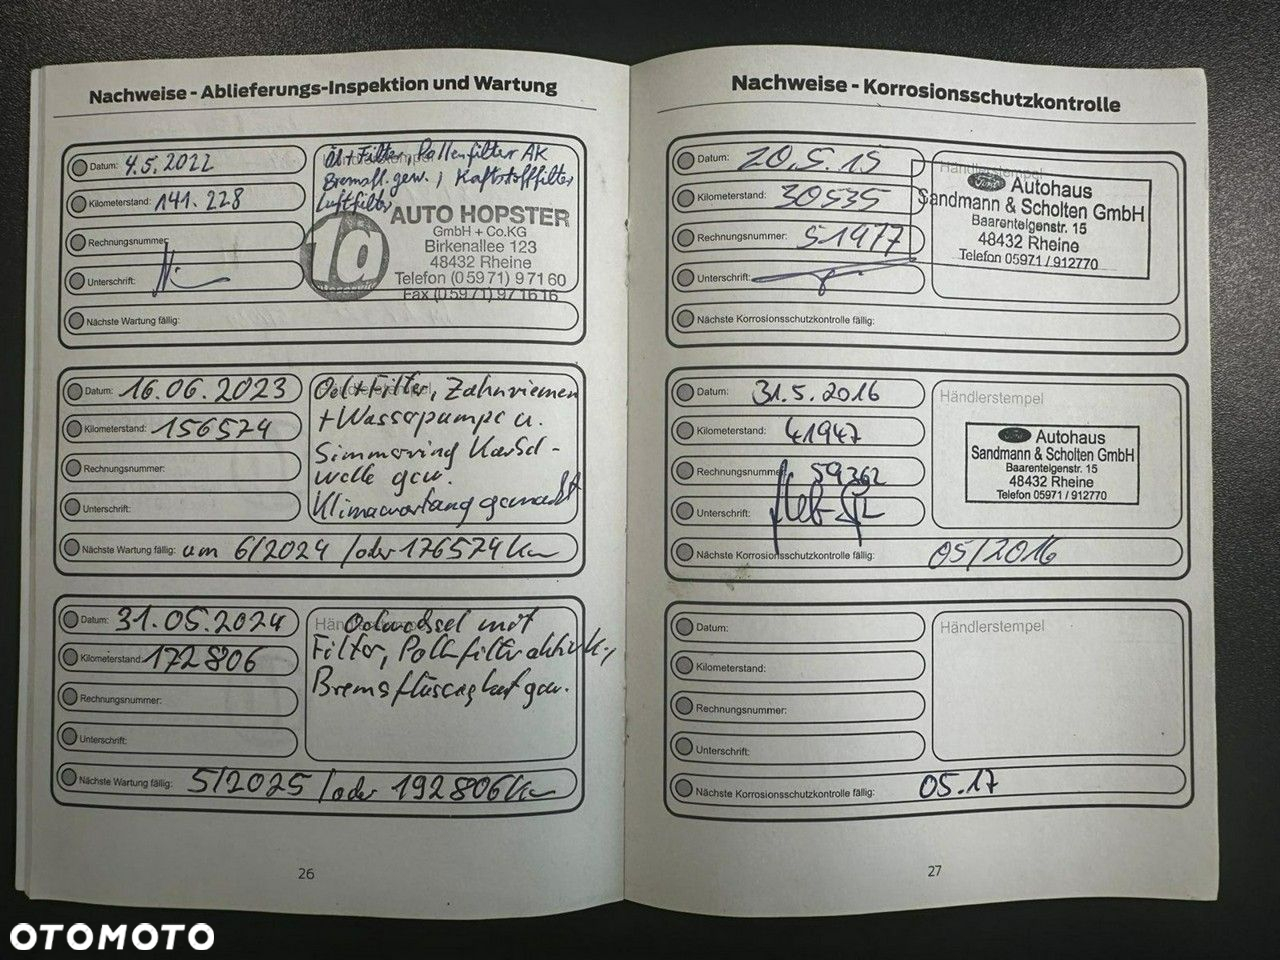 Nachweise - Ablieferungs-Inspektion und Wartung
Datum: 4.5.2022
Kilometerstand: 141.228
Rechnungsnummer:
Unterschrift:
Nächste Wartung fällig:
Händlerstempel
Öl+Filter, Pollenfilter AK
Bremsfl. gew., Kraftstoffilter
Luftfilter
1a
AUTO HOPSTER
GmbH + Co.KG
Birkenallee 123
48432 Rheine
Telefon (05971) 97160
Fax (05971) 971616
Datum: 16.06.2023
Kilometerstand: 156574
Rechnungsnummer:
Unterschrift:
Händlerstempel
Oel+Filter, Zahnriemen
+Wasserpumpe u.
Simmering
welle gew.
Klimawartung gemacht
Nächste Wartung fällig: um 6/2024 /oder 176574 Km
Datum: 31.05.2024
Kilometerstand: 172806
Rechnungsnummer:
Unterschrift:
Händlerstempel
Oelwechsel mit
Filter, Pollenfilter aktivk.,
Bremsflüssigkeit gew.
Nächste Wartung fällig: 5/2025 /oder 192806 Km
26
Nachweise - Korrosionsschutzkontrolle
Datum: 20.5.15
Kilometerstand: 30535
Rechnungsnummer: 51977
Unterschrift:
Nächste Korrosionsschutzkontrolle fällig:
Händlerstempel
Ford Autohaus
Sandmann & Scholten GmbH
Baarentelgenstr. 15
48432 Rheine
Telefon 05971 / 912770
Datum: 31.5.2016
Kilometerstand: 41947
Rechnungsnummer: 59362
Unterschrift:
Nächste Korrosionsschutzkontrolle fällig: 05/2016
Händlerstempel
Ford Autohaus
Sandmann & Scholten GmbH
Baarentelgenstr. 15
48432 Rheine
Telefon 05971 / 912770
Datum:
Kilometerstand:
Rechnungsnummer:
Unterschrift:
Nächste Korrosionsschutzkontrolle fällig: 05.17
Händlerstempel
27
OTOMOTO